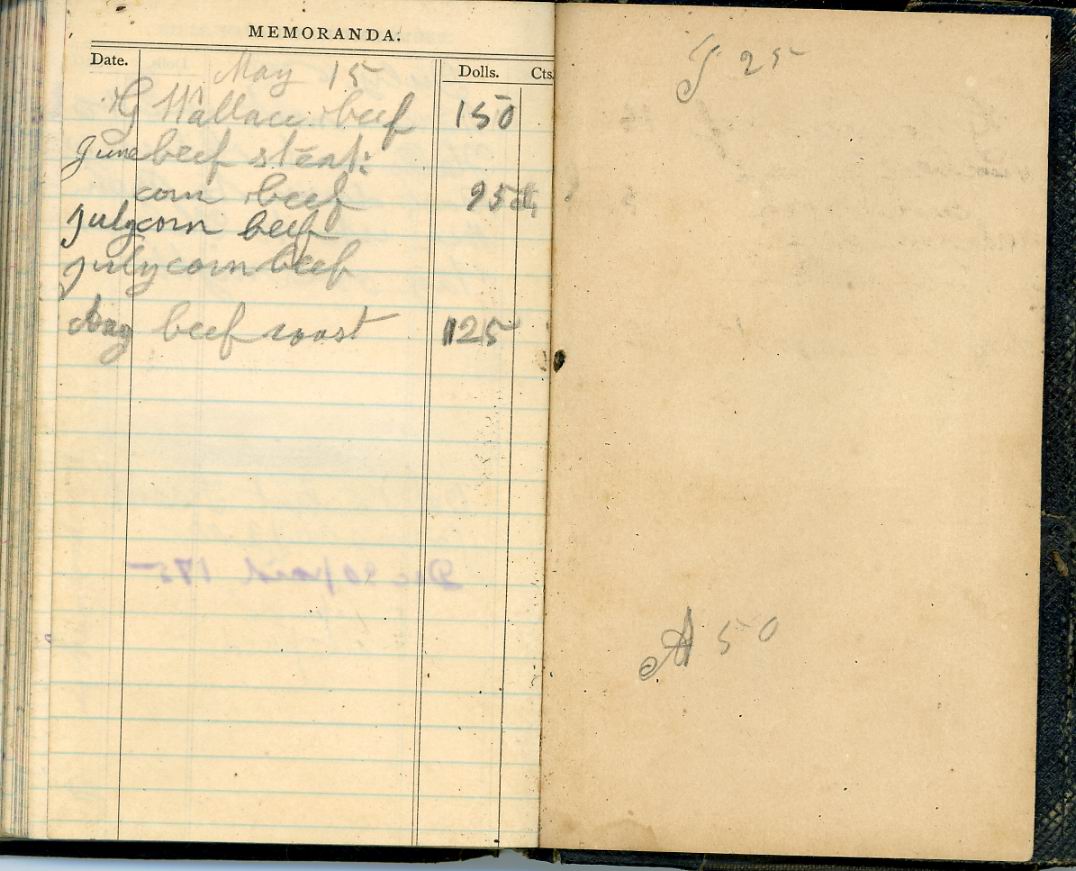 MEMORANDA.
Date. Dolls. Cts.
May 15
G Wallace beef 150
June beef steak
corn beef 95 cts
July corn beef
july corn beef
Aug beef roast 125
Dec 20 paid 175
J 25
A 50